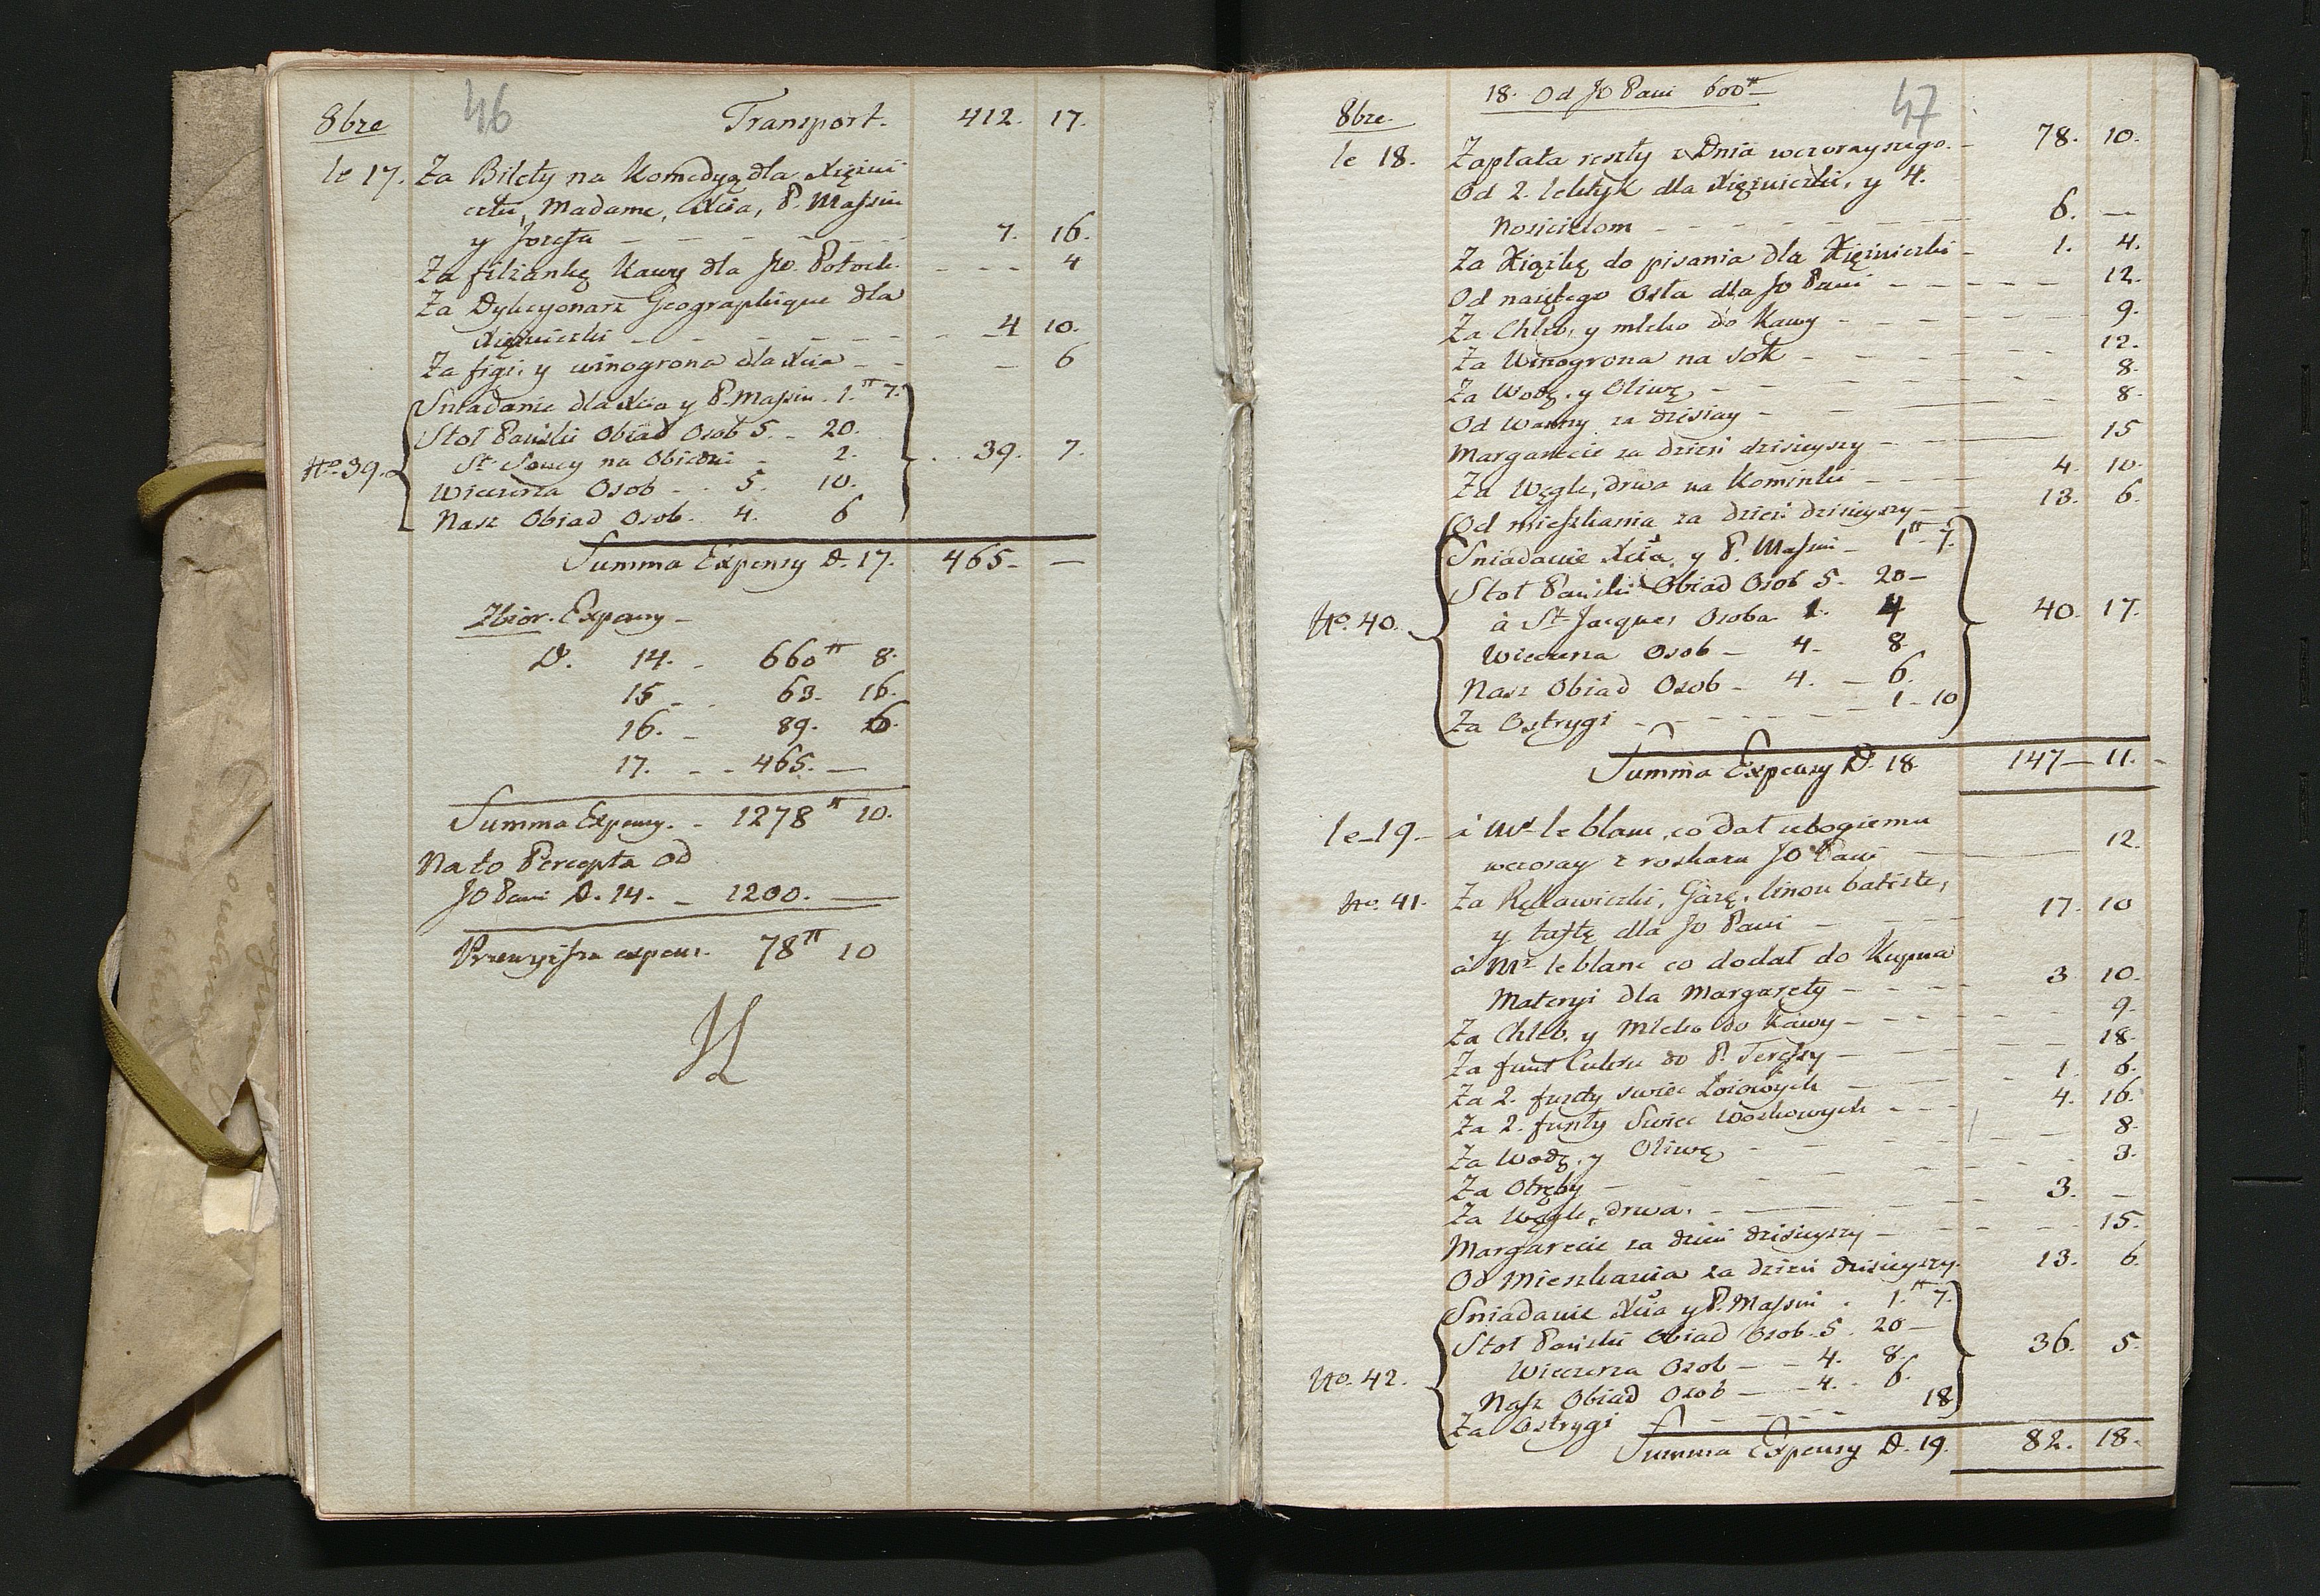 46
8bre Transport. 412. 17.
le 17. Za Bilety na Komedyą dla Xiężni
czki, Madame, Xcia, P. Massin
y Jozefa - - - - - - 7. 16.
Za filiżankę Kawy dla JW. Potock. - - - 4
Za Dykcyonarz Geographique dla
Xiężniczki - - - - - - 4 10.
Za figi. y winogrona dla Xcia - - - 6
Sniadanie dla Xcia y P. Massin. 1.tt 7.
Stoł Pański Obiad Osob 5. - 20.
St. Soucy na Obiedzie - 2. . . 39. 7.
No. 39.
Wieczerza Osob - - 5. 10.
Nasz Obiad Osob. 4. 6
Summa Expensy D. 17. 465 - —
Zbior. Expensy -
D. 14. - 660tt 8.
15 - . 63. 16.
16. - 89. 6.
17. - - 465. —
Summa Expensy. - 1278tt 10.
Na to Percepta od
JO Pani D. 14. - 1200. —
Przewyisza expens. 78tt 10
47
18. Od JO Pani 600tt
8bre.
le 18. Zapłata reszty z Dnia wczorayszego. - 78. 10.
Od 2. lektyk dla Xiężniczki, y 4.
Nosicielom - - - - - - 6. —
Za Xiążkę do pisania dla Xiężniczki - 1. 4.
Od naiętego Osła dla JO Pani - - - - - 12.
Za Chleb, y mleko do Kawy - - - - - 9.
Za Winogrona na sok - - - - 12.
Za Wodę. y Oliwę - - - - 8.
Od Wanny za dzisiay - - - - 8.
Margarecie za dzień dzisieyszy - - - 15
Za Węgle, drwa na Kominki - - - 4. 10.
Od mieszkania za dzień dzisieyszy - - 13. 6.
Sniadanie Xcia, y P. Massin - 1tt - 7.
Stoł Pański Obiad Osob 5. 20 -
à St. Jacques Osoba 1. 4
No. 40. 40. 17.
Wieczerza Osob - 4. 8.
Nasz Obiad Osob - 4. - 6.
Za Ostrygi - - - - - - 1 - 10
Summa Expensy D. 18. 147 - 11. -
le 19 - à Mr. le blanc, co dał ubogiemu
wczoray z roskazu JO Pani - - 12.
No. 41. Za Rękawiczki, Gazę, linon batiste,
y taftę dla JO Pani - - - 17. 10
à Mr. le blanc co dodał do Kupna
Materyi dla Margarety - - - - 3 10.
Za Chleb. y Mleko do Kawy - - - - 9.
Za funt Cukru do P. Teressy - - - - 18.
Za 2. funty swiec Łoiowych - - - 1. 6.
Za 2. funty Swiec Woskowych - - - 4. 16.
Za Wodę. y Oliwę - - - 8.
Za Otręby - - - - 3.
Za Węgle, drwa. - - - - 3. —
Margarecie za dzień dzisieyszy - - - - 15.
Od Mieszkania za dzień dzisieyszy. 13. 6.
Sniadanie Xcia y P. Massin . 1.tt 7.
Stoł Pański Obiad Osob. 5. 20 —
36. 5.
Wieczerza Osob - - 4. 8.
No. 42.
Nasz Obiad Osob - - 4. - 6.
Za Ostrygi - - - - 18
Summa Expensy D. 19. 82. 18.